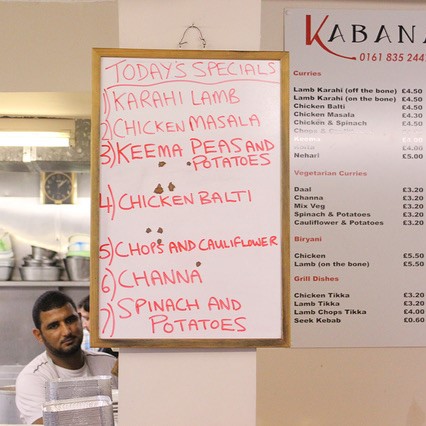 TODAY'S SPECIALS
1) KARAHI LAMB
2) CHICKEN MASALA
3) KEEMA PEAS AND
POTATOES
4) CHICKEN BALTI
5) CHOPS AND CAULIFLOWER
6) CHANNA
7) SPINACH AND
POTATOES
KABANA
0161 835 244
Curries
Lamb Karahi (off the bone) £4.50
Lamb Karahi (on the bone) £4.50
Chicken Balti £4.50
Chicken Masala £4.30
Chicken & Spinach £4.50
Nehari £5.00
Vegetarian Curries
Daal £3.20
Channa £3.20
Mix Veg £3.20
Spinach & Potatoes £3.20
Cauliflower & Potatoes £3.20
Biryani
Chicken £5.50
Lamb (on the bone) £5.50
Grill Dishes
Chicken Tikka £3.20
Lamb Tikka £3.20
Lamb Chops Tikka £4.00
Seek Kebab £0.60